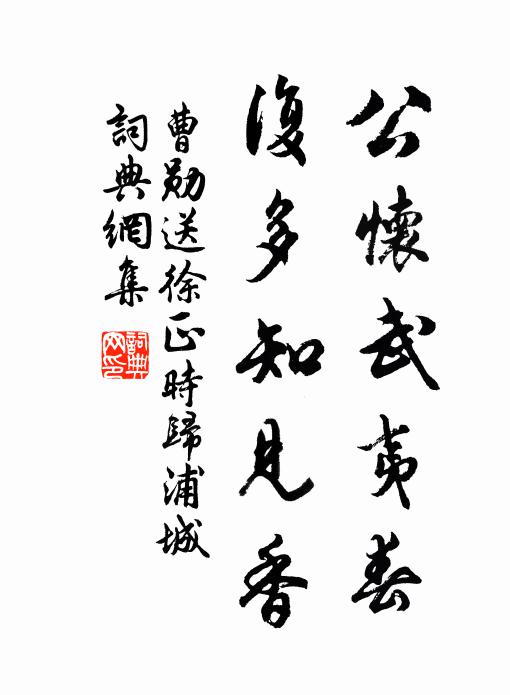 公懷武夷春
復多知見香
曹勛送徐正時歸浦城
詞典網集
詞典網印